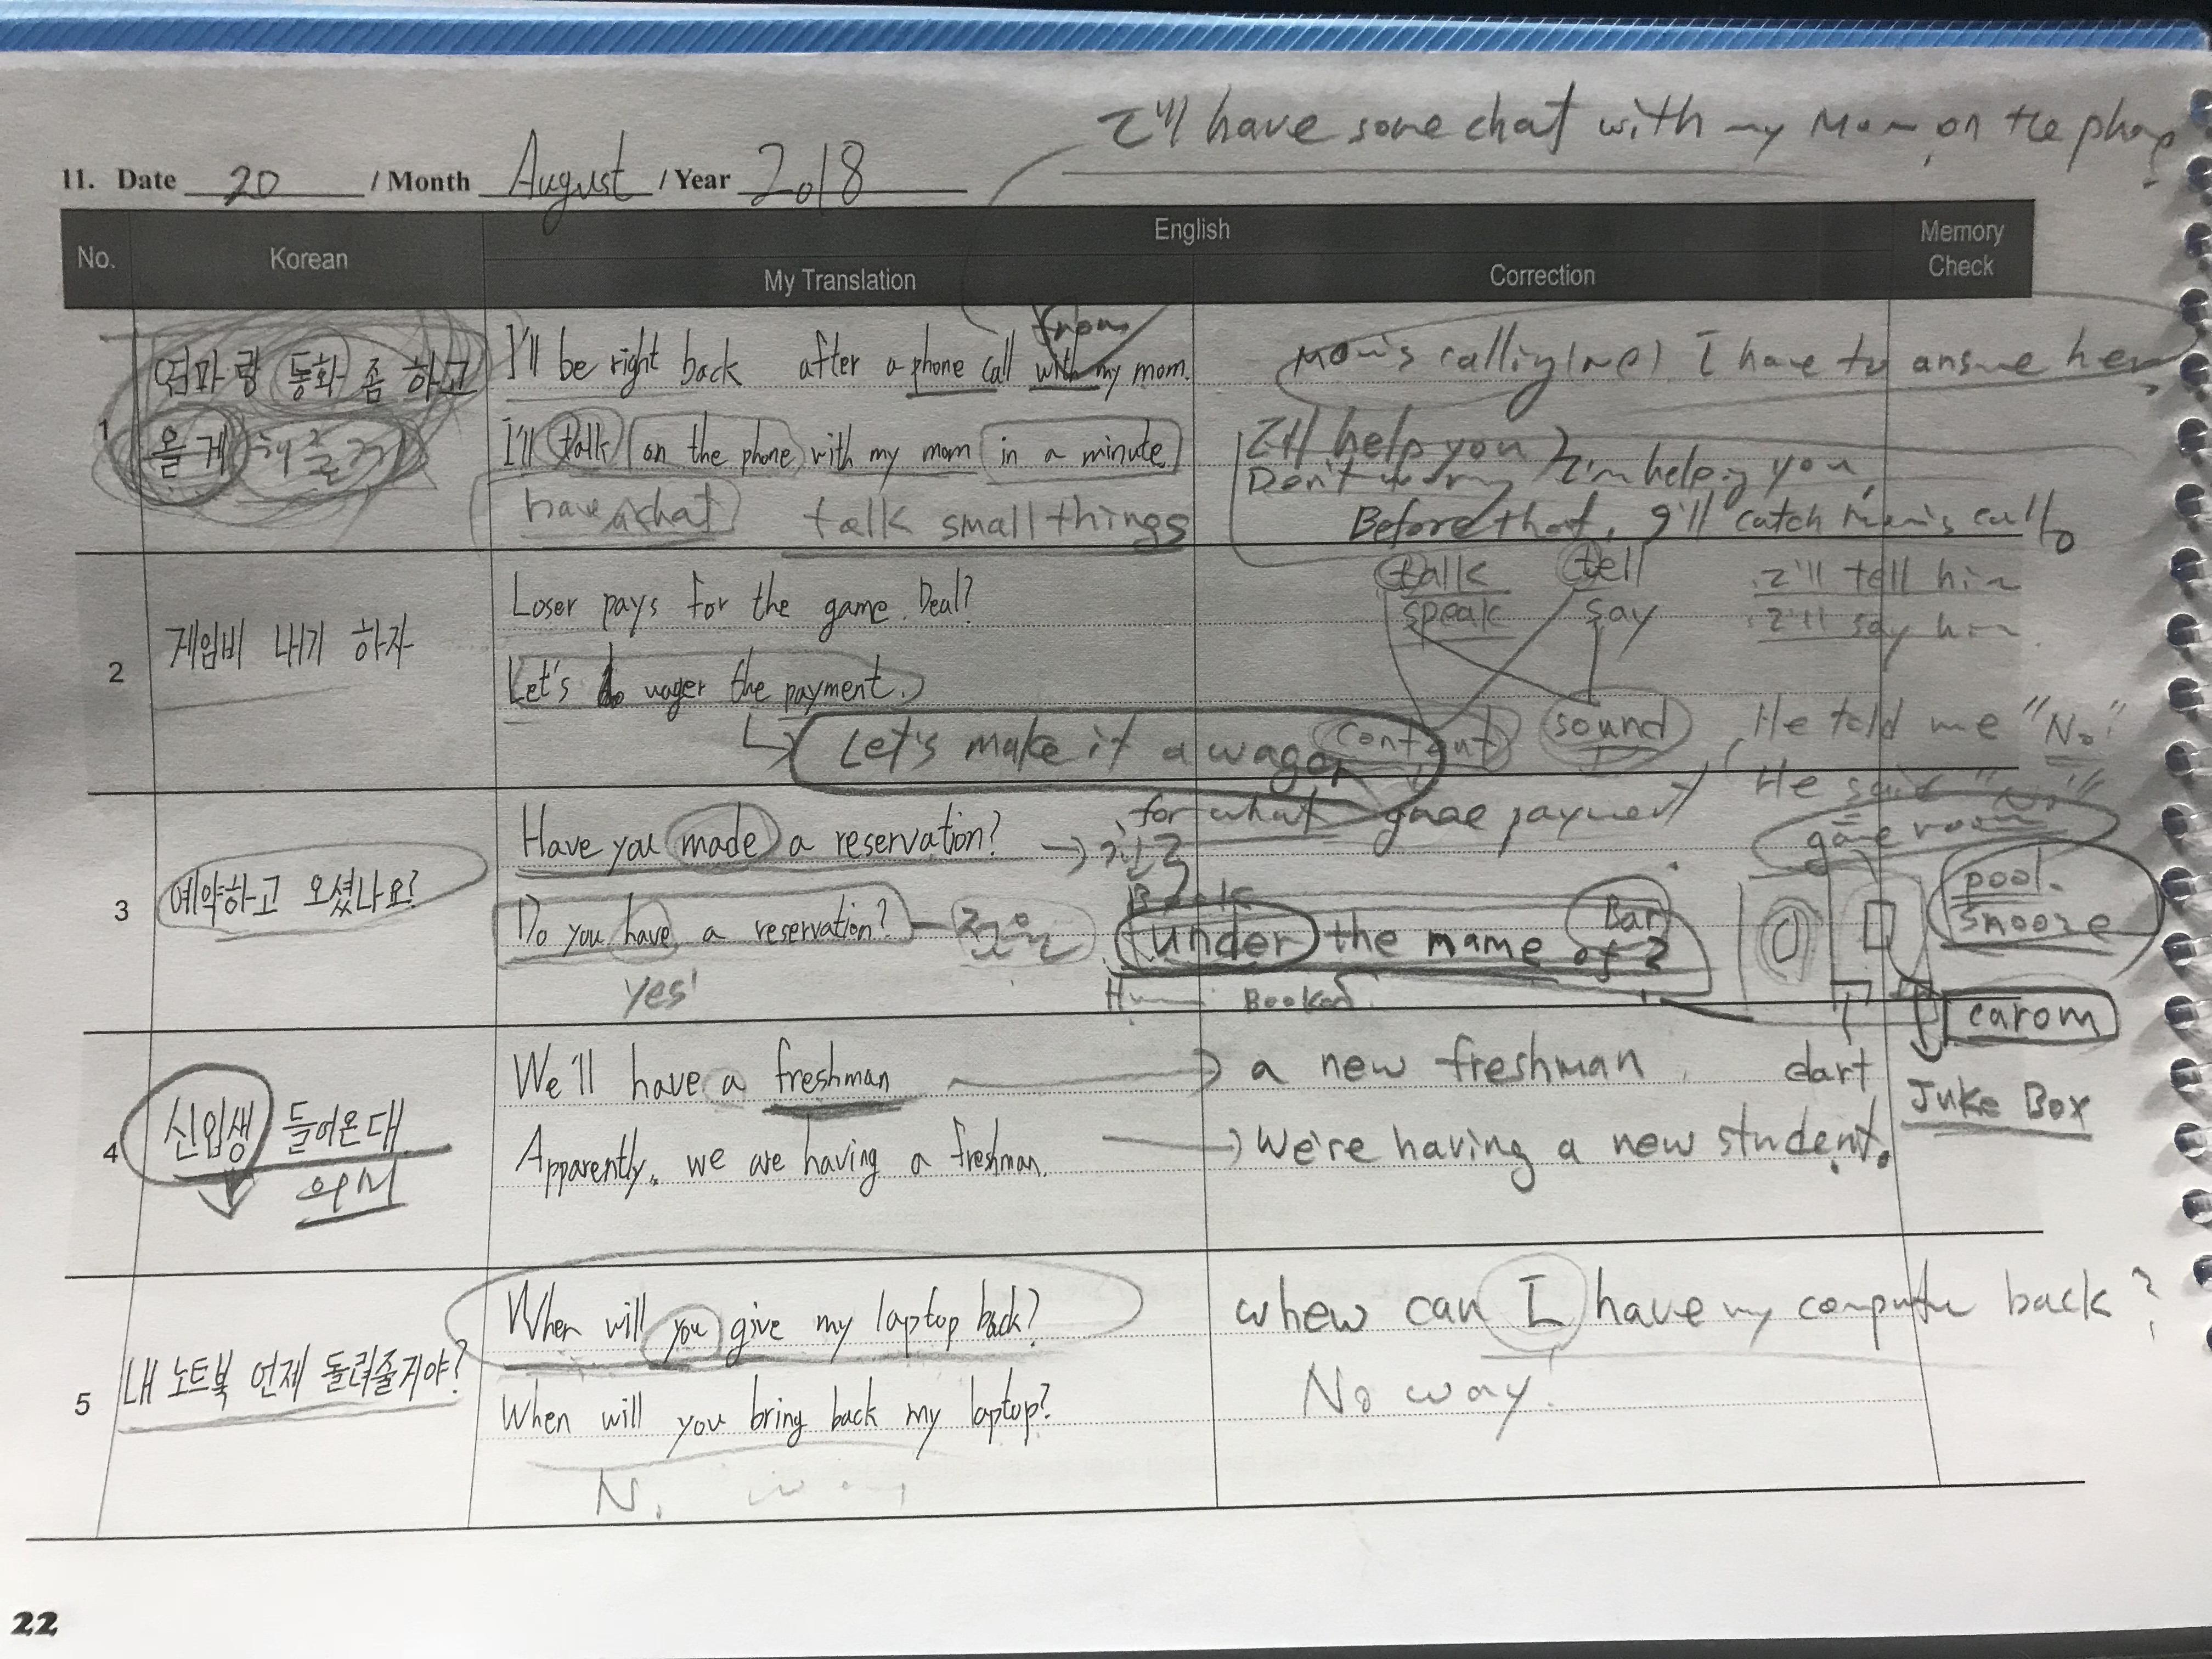 I'll have some chat with my Mom on the phone
11. Date 20 / Month August / Year 2018
No. Korean English Memory Check
My Translation Correction
1
엄마랑 통화 좀 하고
올게 해줄게
I'll be right back after a phone call with my mom.
from
I'll talk on the phone with my mom in a minute
have a chat talk small things
Mom's calling (me). I have to answer her
I'll help you
Don't worry I'm helping you,
Before that, I'll catch Mom's call
2
게임비 내기 하자
Loser pays for the game. Deal?
Let's wager the payment.
Let's make it a wager
for what game payment
talk tell
speak say
content sound
I'll tell him
I'll say him
He told me "No"
He said "No"
3
예약하고 오셨나요?
Have you made a reservation?
친구
Do you have a reservation?
yes!
Book
under the name of?
Bar
Booked
game room
pool.
snooze
carom
dart
Juke Box
4
신입생 들어온대
We'll have a freshman
a new freshman
Apparently, we are having a freshman.
We're having a new student.
5
내 노트북 언제 돌려줄거야?
When will you give my laptop back?
When will you bring back my laptop?
when can I have my computer back?
No way!
22